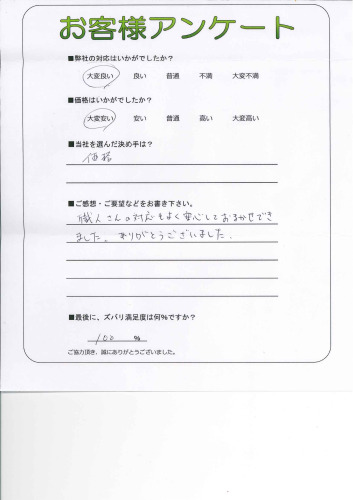 お客様アンケート
■弊社の対応はいかがでしたか？
大変良い 良い 普通 不満 大変不満
■価格はいかがでしたか？
大変安い 安い 普通 高い 大変高い
■当社を選んだ決め手は？
価格
■ご感想・ご要望などをお書き下さい。
職人さんの対応もよく安心しておまかせでき
ました。ありがとうございました。
■最後に、ズバリ満足度は何%ですか？
100 %
ご協力頂き、誠にありがとうございました。